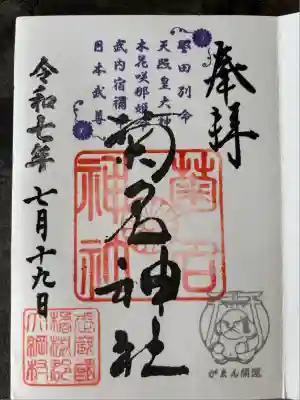 奉拝
誉田別命
天照皇大神
木花咲耶姫命
武内宿禰命
日本武尊
菊名神社
菊名神社
令和七年 七月十九日
武蔵國
橘樹郡
大綱村
がまん開運